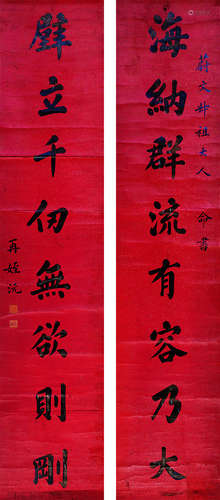 蔣文卿祖大人 命書
海納群流有容乃大
壁立千仞無欲則剛
再姪沅